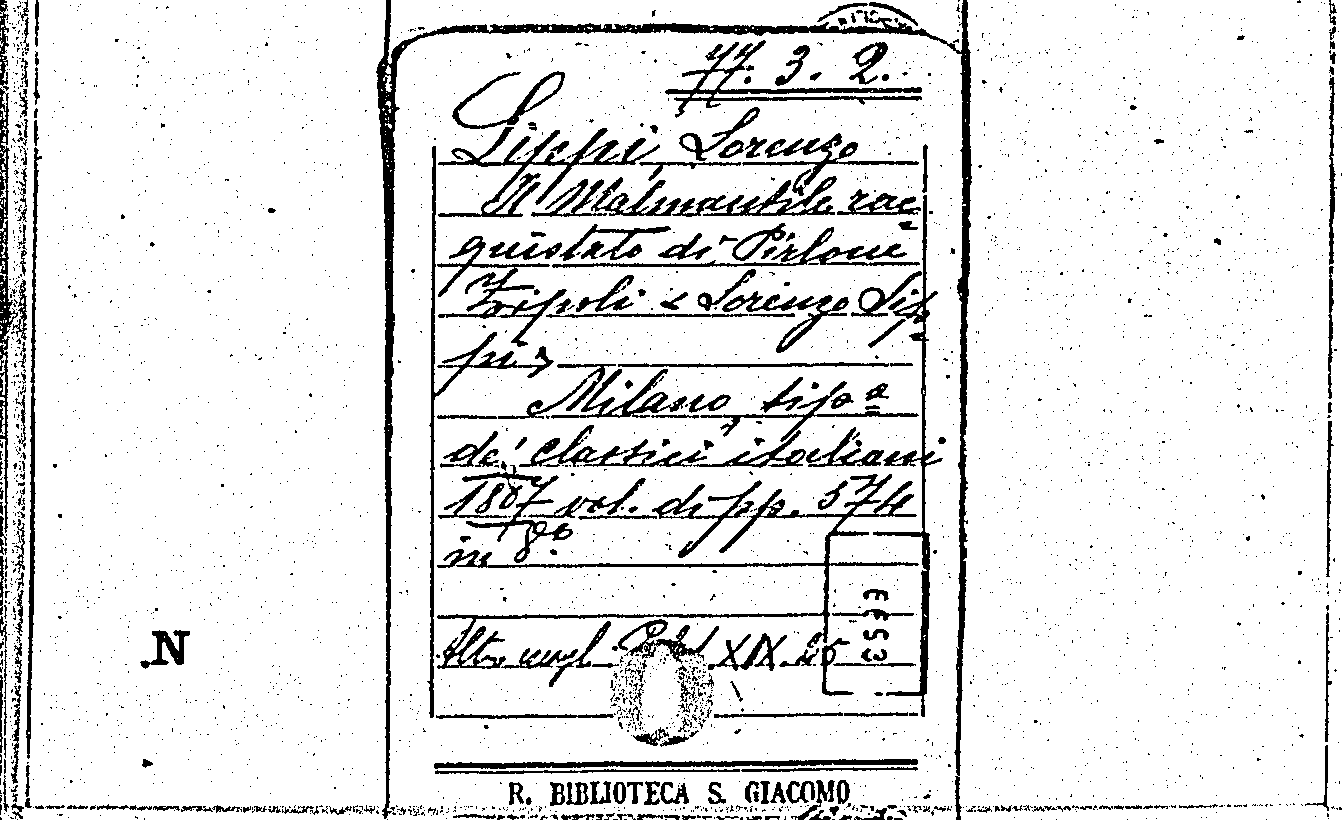 77. 3. 2.
Lippi, Lorenzo
Il Malmantile rac=
quistato di Perlone
Zipoli < Lorenzo Lip=
pi >
Milano, tip.a
de' classici italiani
1807 vol. di pp. 574
in 8.o
Altro XIX.25
3533
.N
R. BIBLIOTECA S. GIACOMO